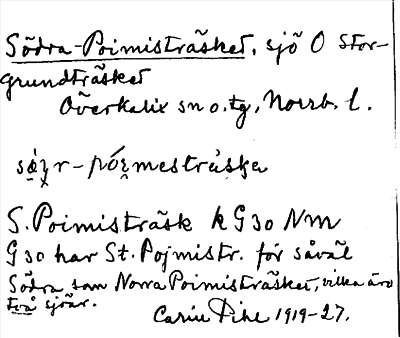 Södra-Poimisträsket, sjö O Stor-
grundträsket
Överkalix sn o. tg, Norrb. l.
S. Poimisträsk k G30 Nm
G30 har St. Pojmistr. för såväl
Södra som Norra Poimisträsket, vilka äro
två sjöar.
Carin Pihl 1919-27.